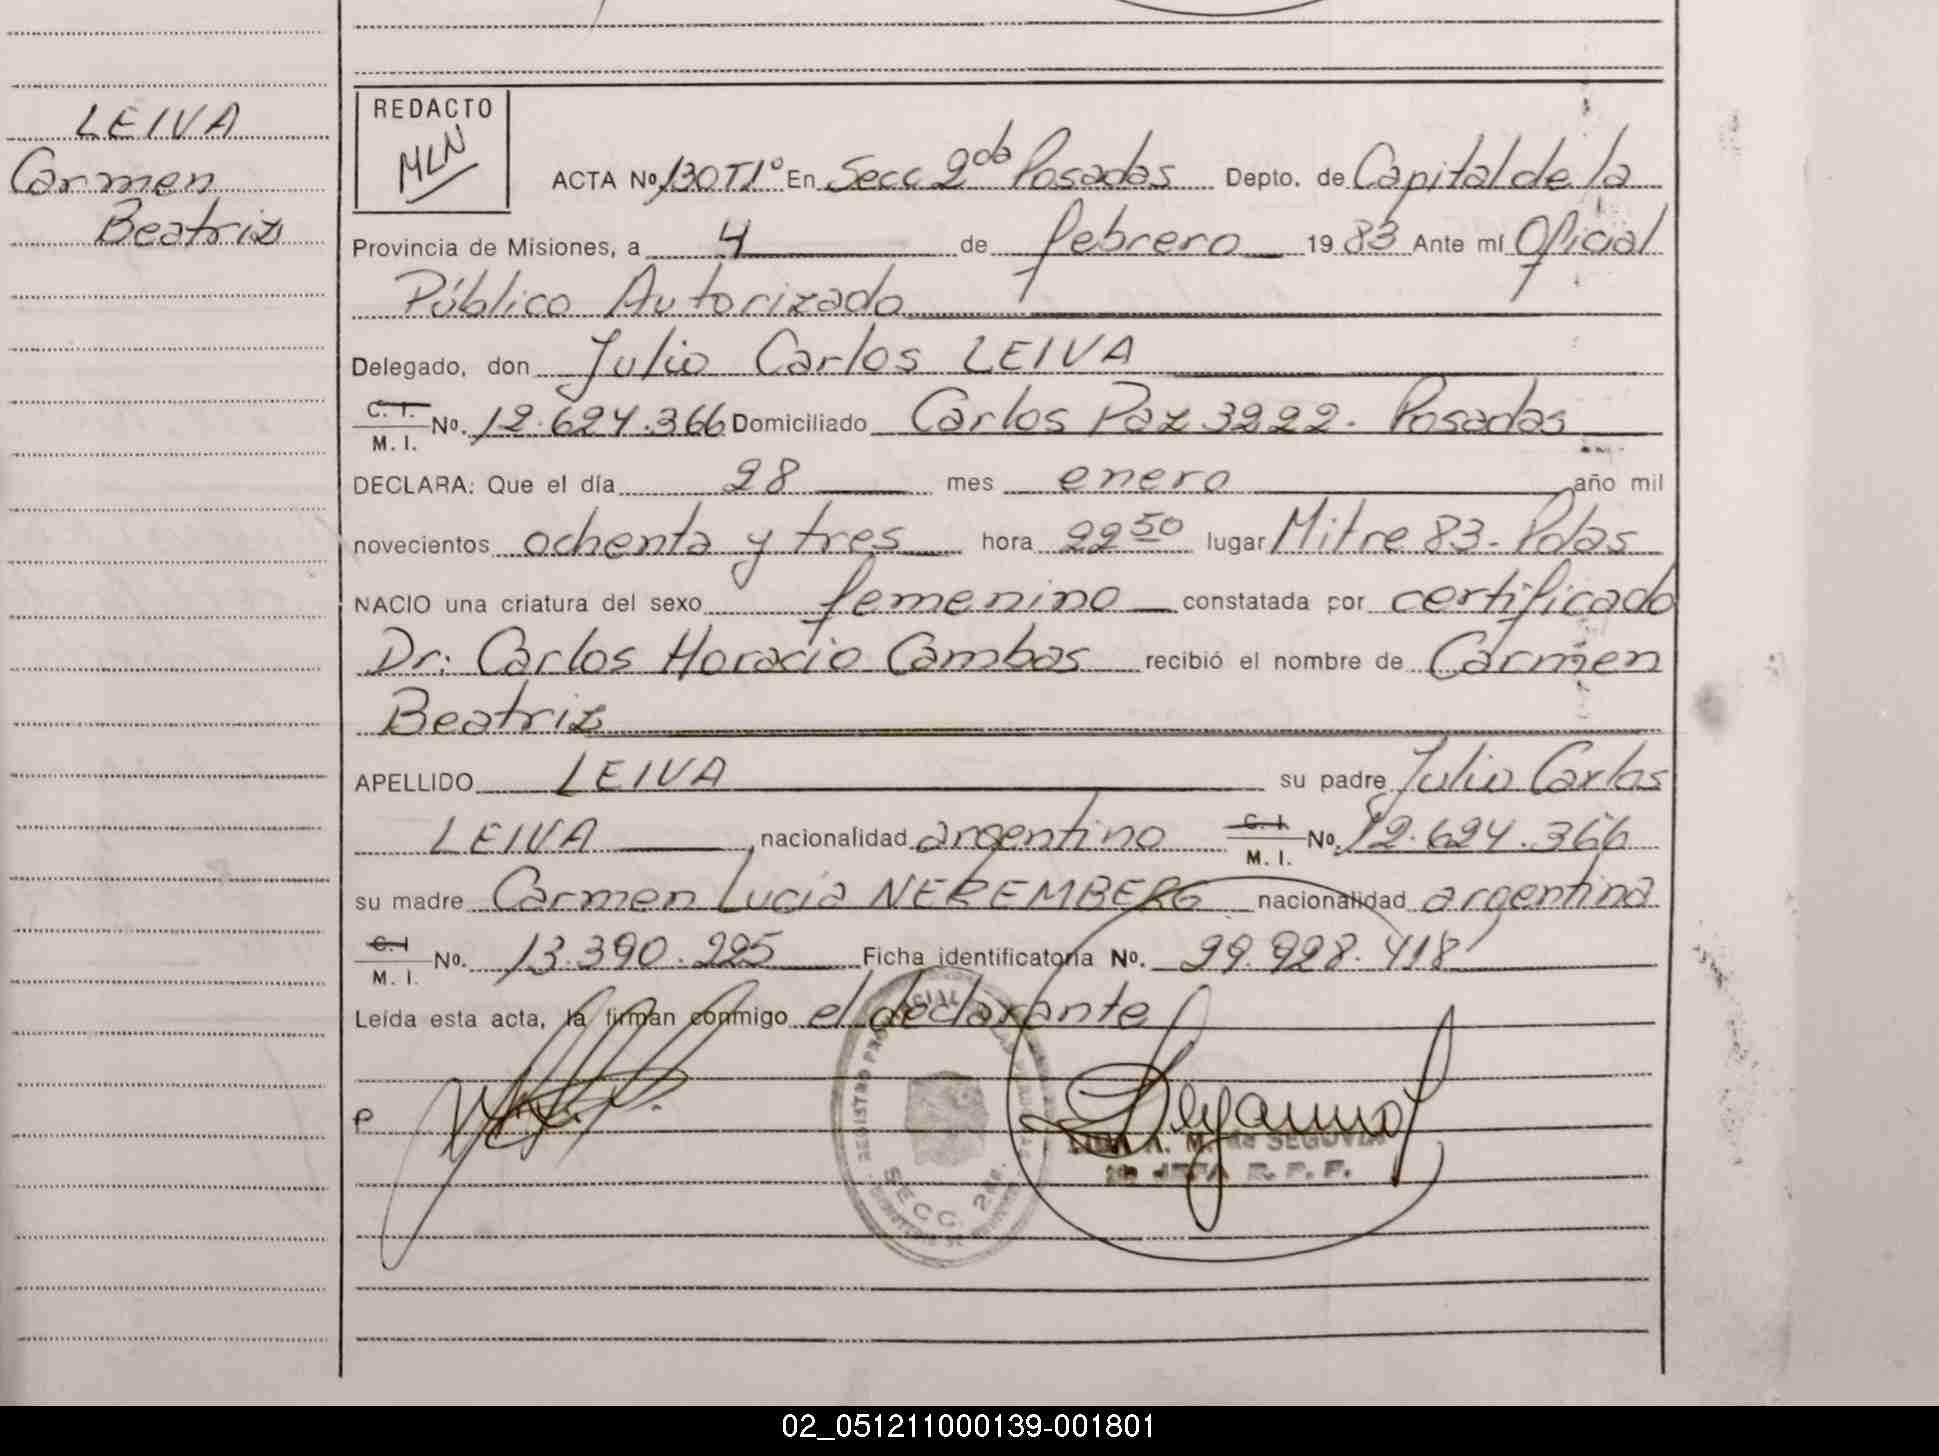 LEIVA
Carmen
Beatriz
REDACTO
MLN
ACTA Nº 130 T1º En Secc 2da Posadas Depto. de Capital de la
Provincia de Misiones, a 4 de febrero 1983 Ante mí Oficial
Público Autorizado
Delegado, don Julio Carlos LEIVA
C. I. / M. I. Nº. 12.624.366 Domiciliado Carlos Paz 3222. Posadas
DECLARA: Que el día 28 mes enero año mil
novecientos ochenta y tres hora 22 50 lugar Mitre 83 - Pdas
NACIO una criatura del sexo femenino constatada por certificado
Dr: Carlos Horacio Cambas recibió el nombre de Carmen
Beatriz
APELLIDO LEIVA su padre Julio Carlos
LEIVA, nacionalidad argentino C. I. / M. I. Nº. 12.624.366
su madre Carmen Lucia NEREMBERG nacionalidad argentina
C. I / M. I. Nº. 13.390.225 Ficha identificatoria Nº. 29.928.418
Leída esta acta, la firman conmigo el declarante
P
REGISTRO
SECC. 2da.
SEGOVIA
JEFA R. P. P.
02_051211000139-001801